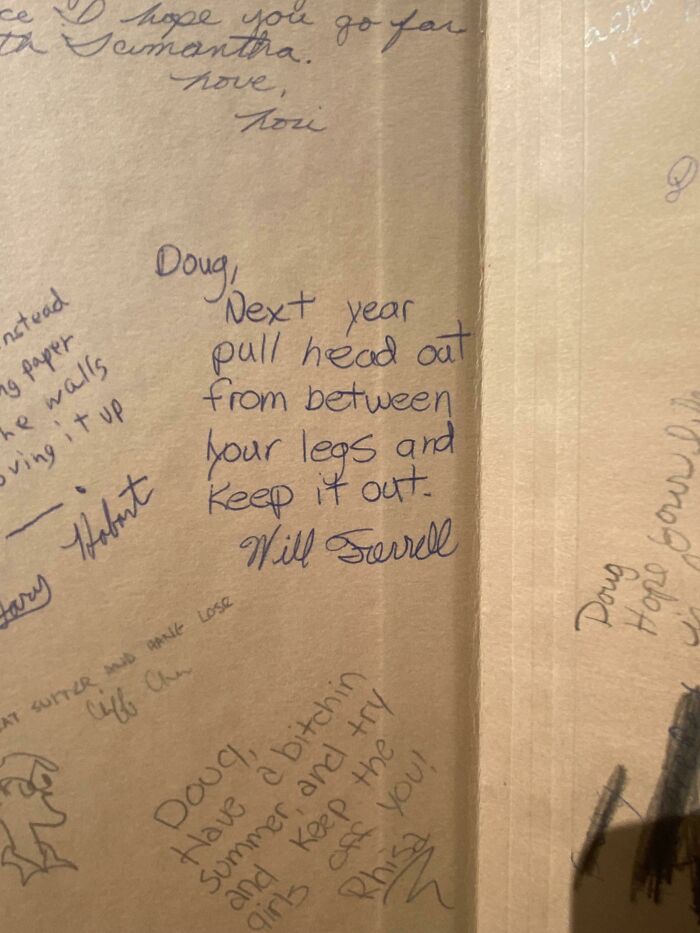 ce I hope you go far
th Samantha.
Love,
Lori
Doug,
Next year
pull head out
from between
your legs and
keep it out.
Will Ferrell
instead
ng paper
he walls
oving it up
Hobart
SUTTER AND HANG LOSE
Cliff
Doug,
Have a bitchin
summer, and try
and keep the
girls off you!
Rhisa
Doug
Hope your